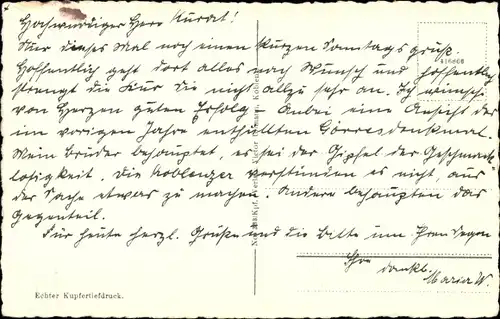 Hochwürdiger Herr Kurat!
Nur dieses Mal noch einen kurzen Sonntagsgruß.
Hoffentlich geht dort alles nach Wunsch und hoffentl.
strengt die Kur Sie nicht allzu sehr an. Ich wünsche
von Herzen guten Erfolg. Anbei eine Ansicht des
im vorigen Jahre enthüllten Görresdenkmal.
Mein Bruder behauptet, es sei der Gipfel der Geschmack-
losigkeit. Die Koblenzer verstünden es nicht, aus
der Sache etwas zu machen. Andere behaupten das
Gegenteil.
Für heute herzl. Grüße und die Bitte um Ihren Segen
Ihre dankb.
Maria W.
Echter Kupfertiefdruck.